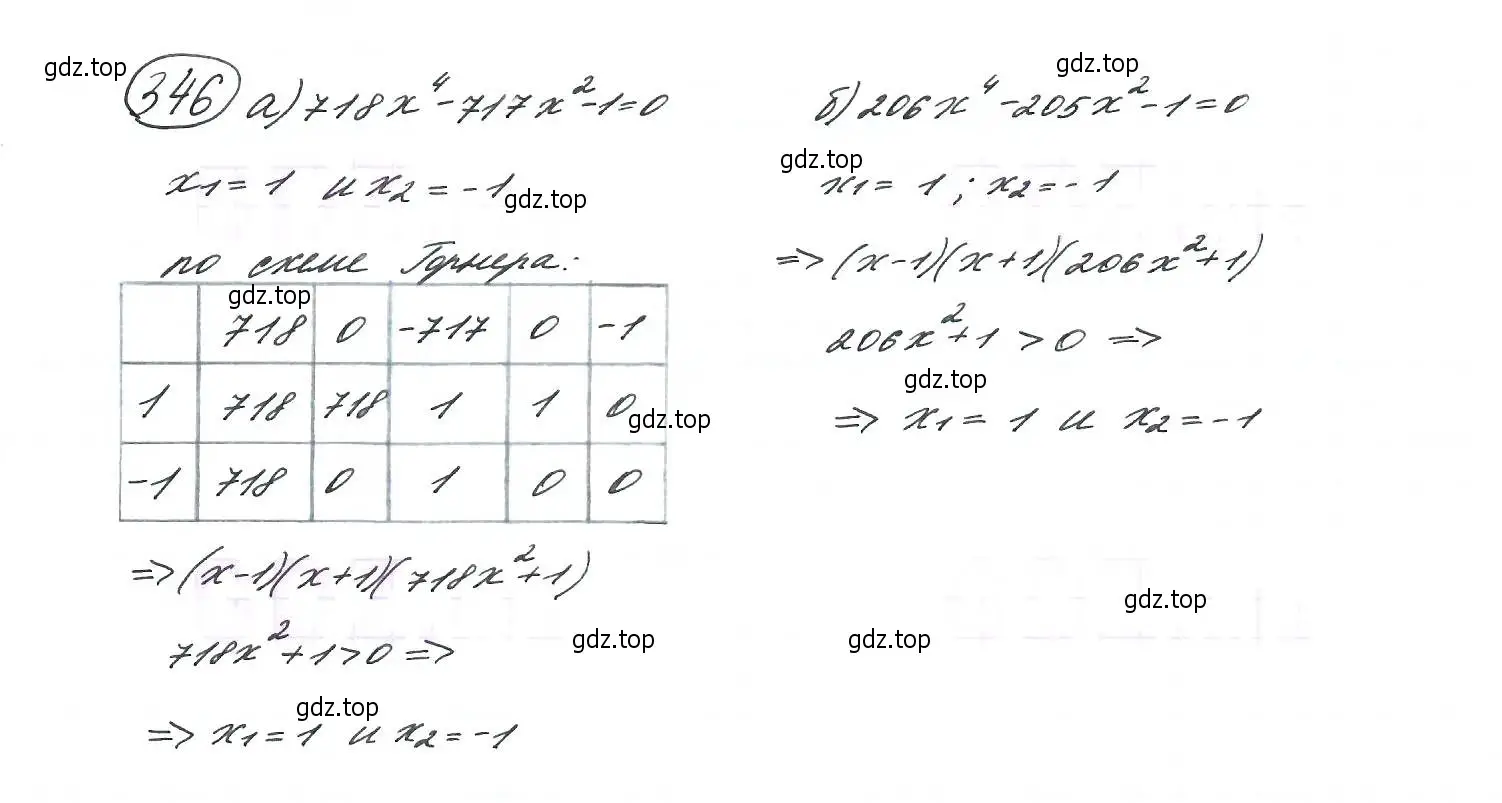 gdz.top
346 а) 718x⁴-717x²-1=0
x₁= 1 и x₂ = -1
gdz.top
по схеме Горнера:
gdz.top
718 0 -717 0 -1
1 718 718 1 1 0
gdz.top
-1 718 0 1 0 0
=> (x-1)(x+1)(718x²+1)
718x²+1>0 =>
gdz.top
gdz.top
=> x₁=1 и x₂=-1
gdz.top
б) 206x⁴-205x²-1=0
gdz.top
x₁= 1 ; x₂=-1
=> (x-1)(x+1)(206x²+1)
206x²+1 >0 =>
gdz.top
=> x₁= 1 и x₂=-1
gdz.top
gdz.top